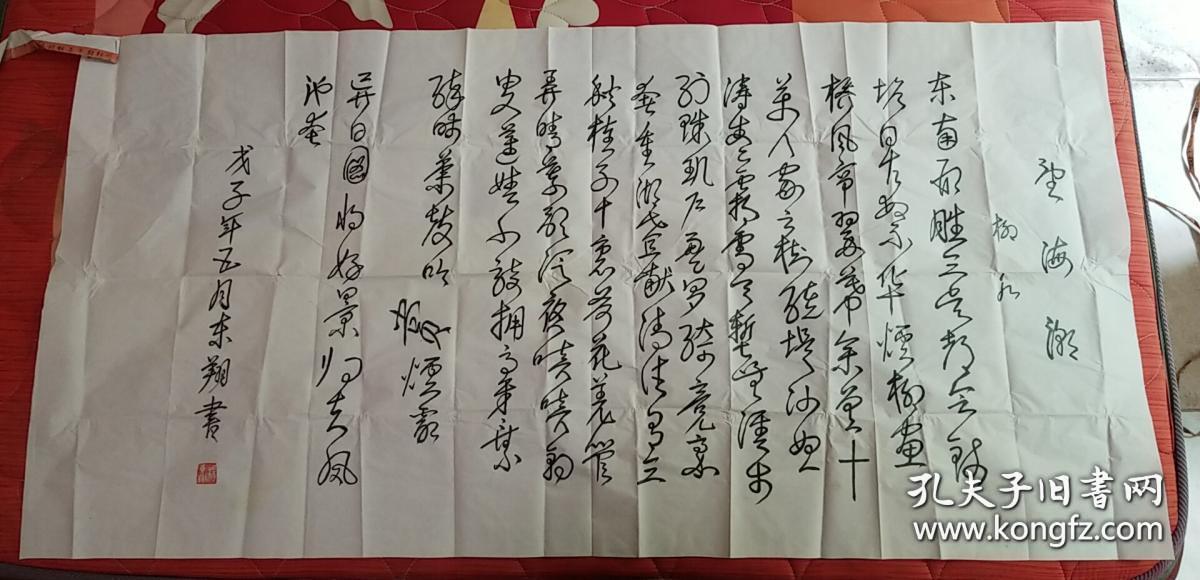 望海潮
柳永
东南形胜三吴都会钱
塘自古繁华煙柳画
桥风帘翠幕参差十
萬人家云树绕堤沙怒
涛卷霜雪天堑无涯市
列珠玑户盈罗绮竞豪
奢重湖叠巘清佳有三
秋桂子十里荷花羌管
弄晴菱歌泛夜嘻嘻钓
叟莲娃千骑拥高牙乘
醉听萧鼓吟
赏煙霞
异日圖将好景归去凤
池夸
戊子年五月东翔书
孔夫子旧书网
www.kongfz.com